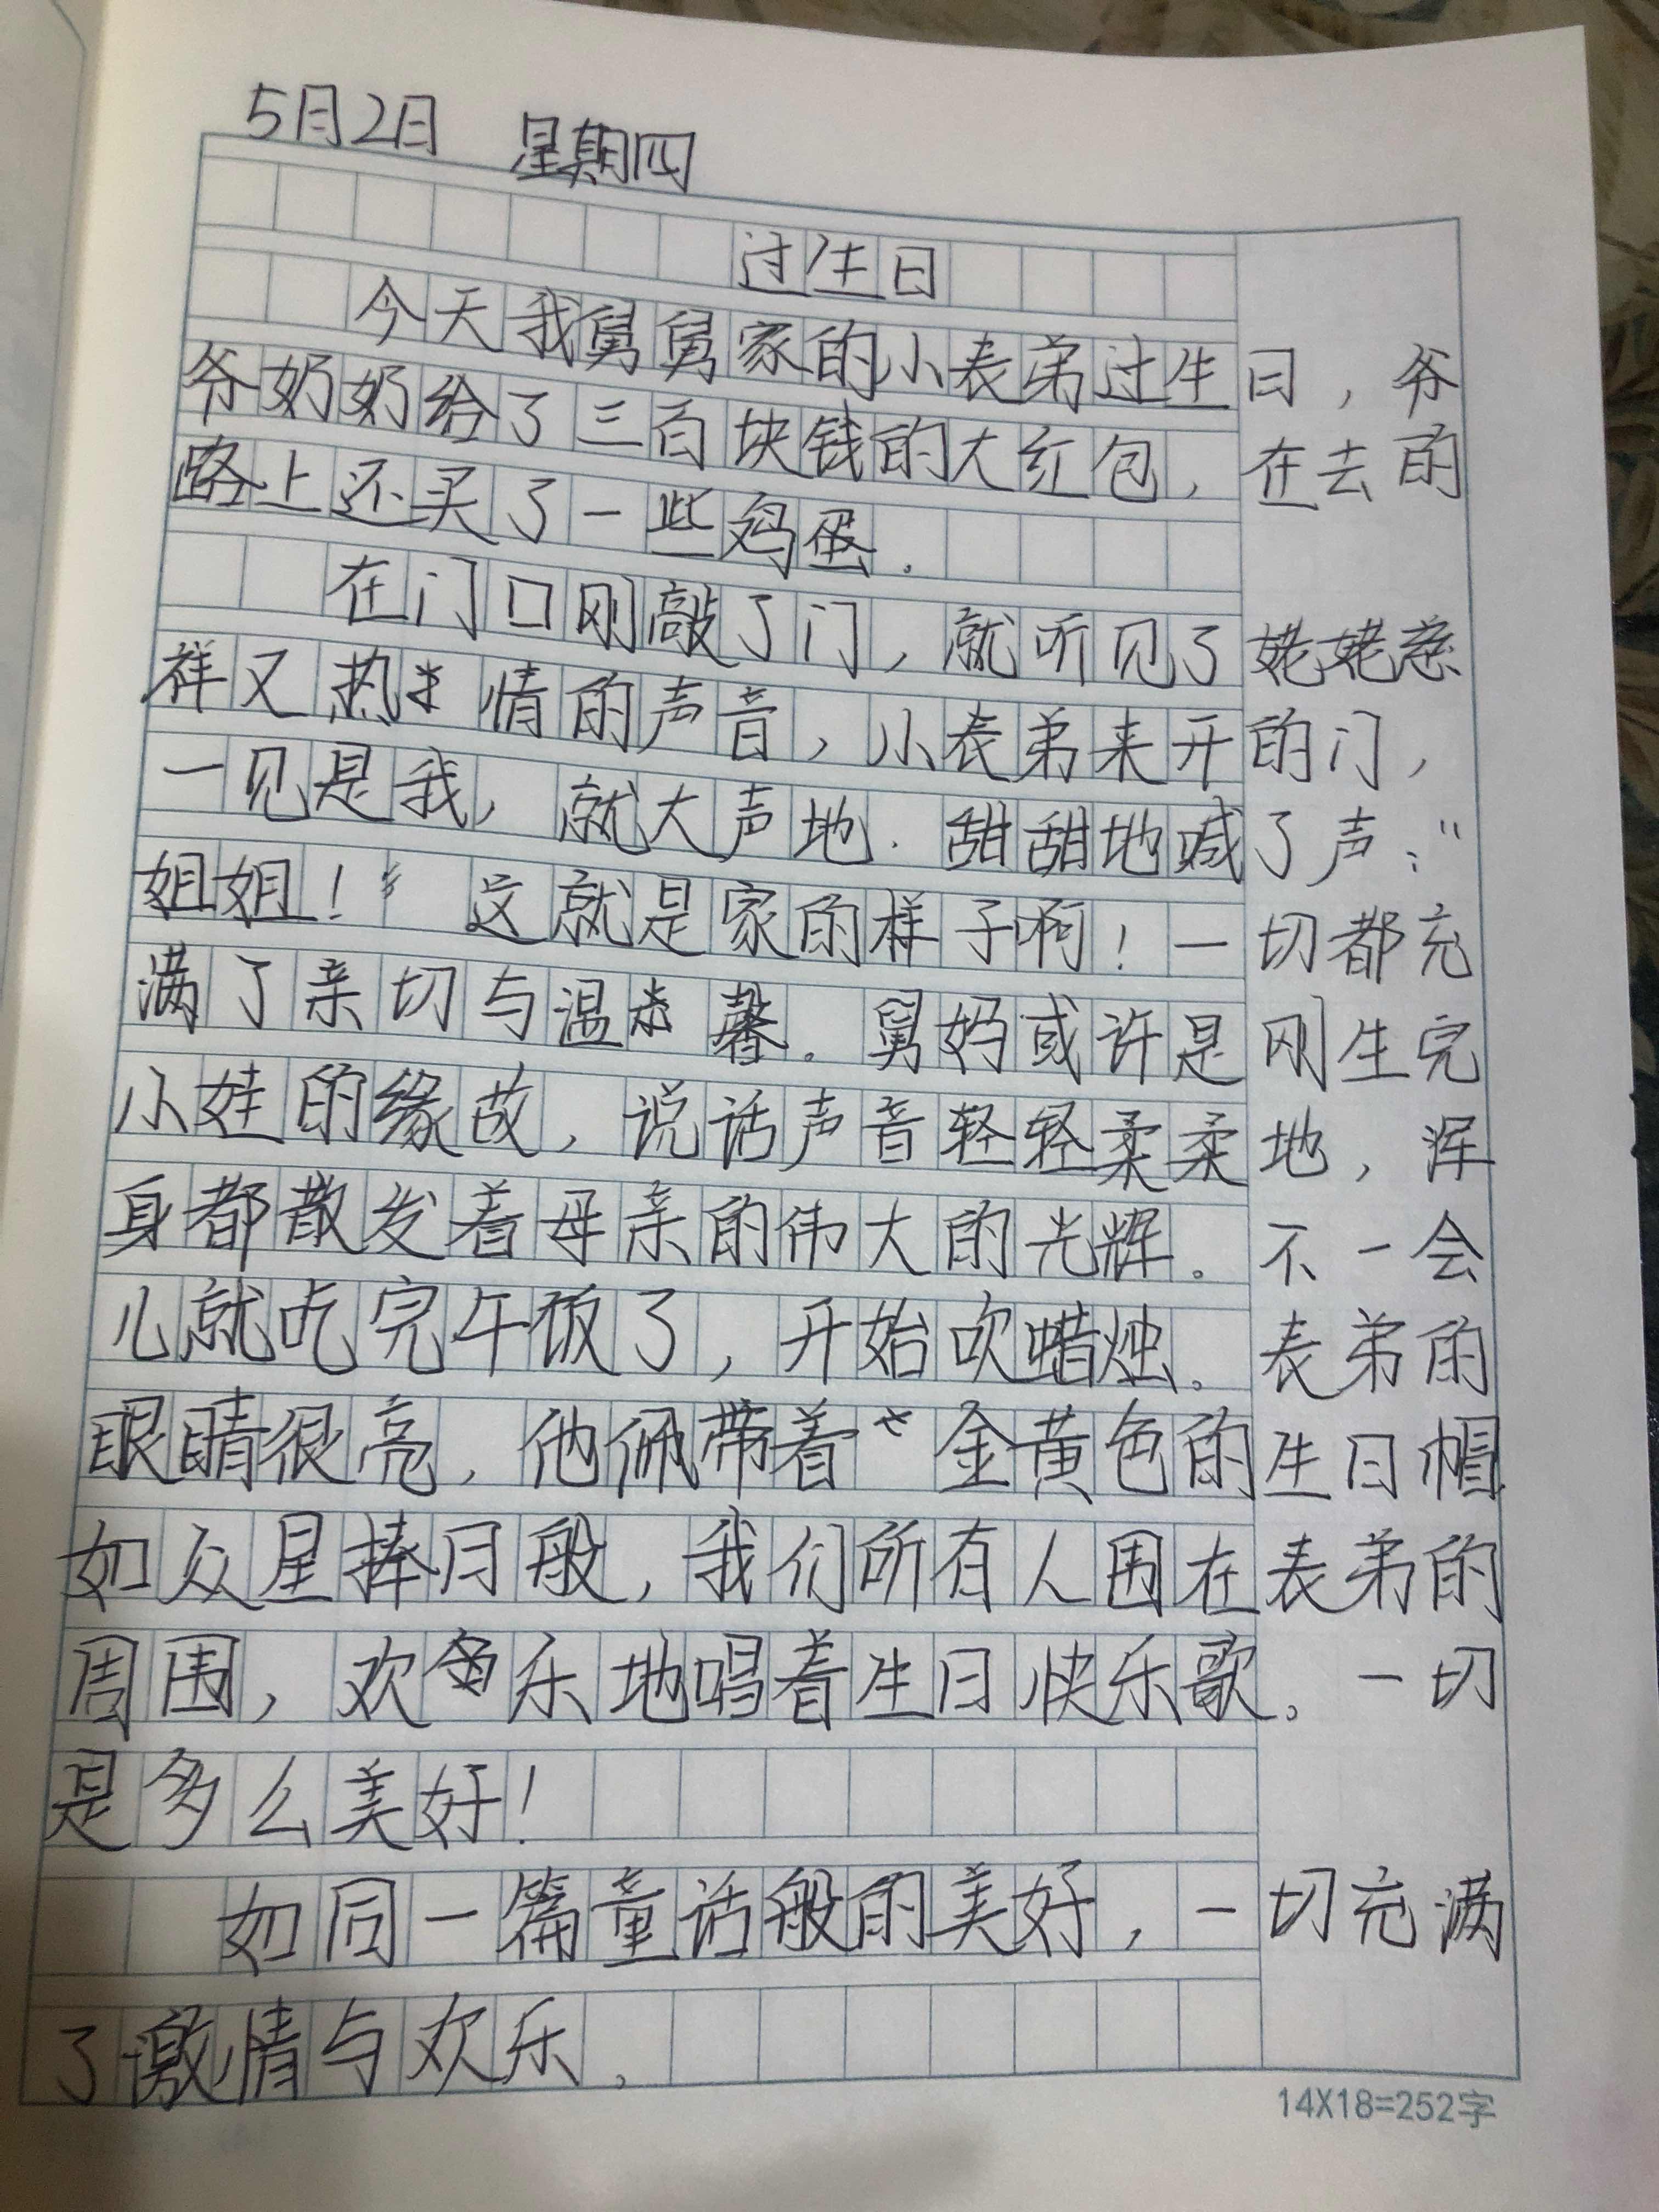 5月2日 星期四
过生日
今天我舅舅家的小表弟过生日，爷
爷奶奶给了三百块钱的大红包，在去的
路上还买了一些鸡蛋。
在门口刚敲了门，就听见了姥姥慈
祥又热情的声音，小表弟来开的门，
一见是我，就大声地.甜甜地喊了声："
姐姐！" 这就是家的样子啊！一切都充
满了亲切与温馨。舅妈或许是刚生完
小娃的缘故，说话声音轻轻柔柔地，浑
身都散发着母亲的伟大的光辉。不一会
儿就吃完午饭了，开始吹蜡烛。表弟的
眼睛很亮，他佩带着金黄色的生日帽
如众星捧月般，我们所有人围在表弟的
周围，欢乐地唱着生日快乐歌。一切
是多么美好！
如同一篇童话般的美好，一切充满
了激情与欢乐。
14X18=252字